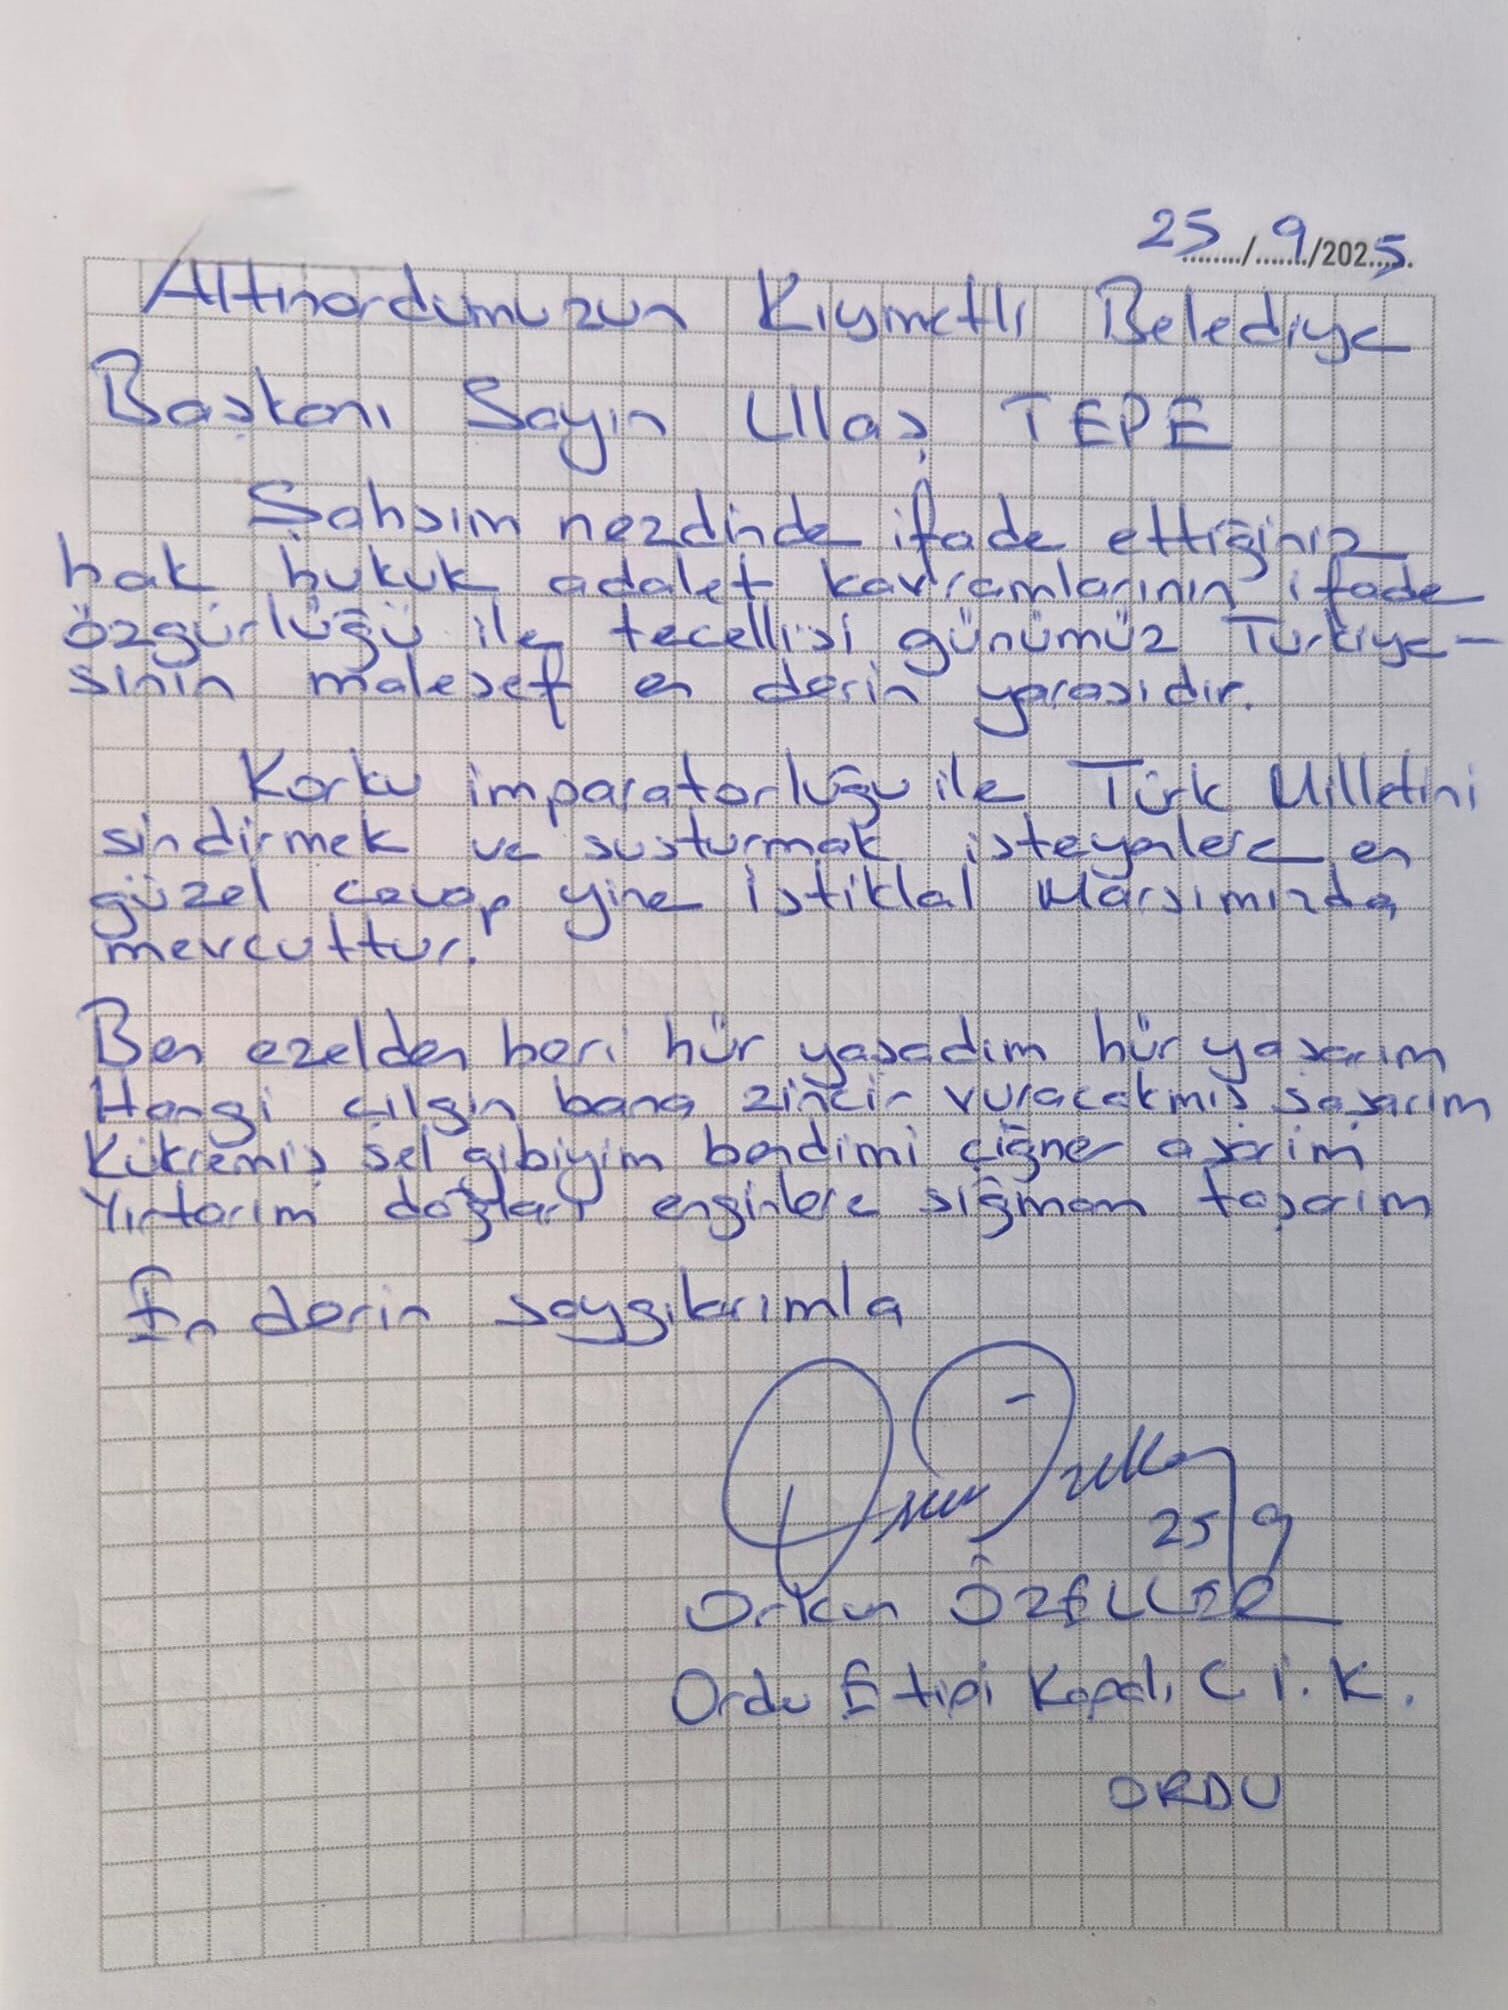 25/9/2025
Altınordumuzun Kıymetli Belediye
Başkanı Sayın Ulaş TEPE
Şahsım nezdinde ifade ettiğiniz
hak hukuk adalet kavramlarının ifade
özgürlüğü ile tecellisi günümüz Türkiye-
sinin malesef en derin yarasıdır.
Korku imparatorluğu ile Türk Milletini
sindirmek ve susturmak isteyenlere en
güzel cevap yine İstiklal Marşımızda
mevcuttur.
Ben ezelden beri hür yaşadım hür yaşarım
Hangi çılgın bana zincir vuracakmış şaşarım
Kükremiş sel gibiyim bendimi çiğner aşarım
Yırtarım dağları enginlere sığmam taşarım
En derin saygılarımla
25/9
Orkun ÖZELLER
Ordu E tipi Kapalı C.İ.K.
ORDU